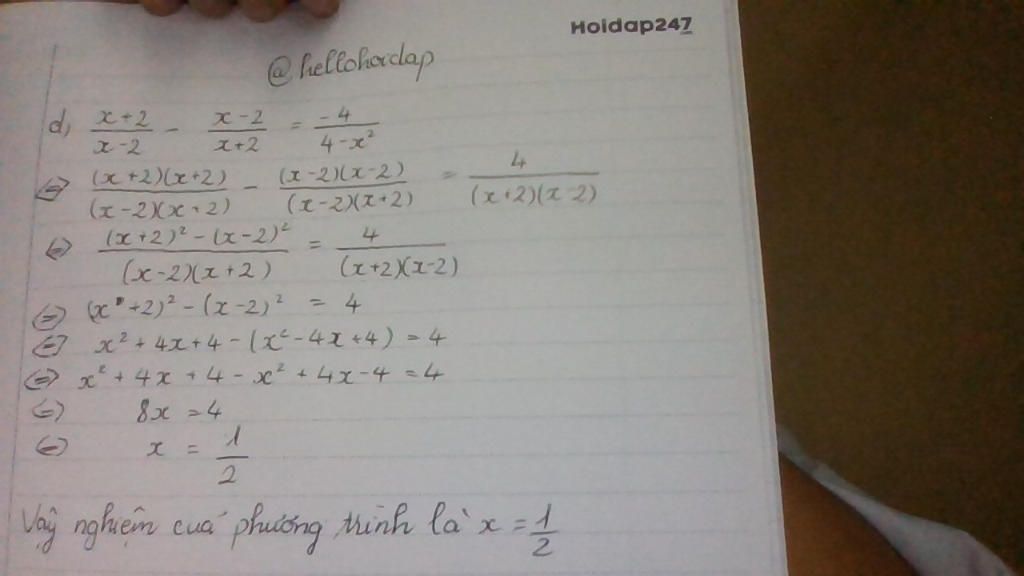 Hoidap247
@hellohoidap
d, \frac{x+2}{x-2} - \frac{x-2}{x+2} = \frac{-4}{4-x^2}
<=> \frac{(x+2)(x+2)}{(x-2)(x+2)} - \frac{(x-2)(x-2)}{(x-2)(x+2)} = \frac{4}{(x+2)(x-2)}
<=> \frac{(x+2)^2-(x-2)^2}{(x-2)(x+2)} = \frac{4}{(x+2)(x-2)}
<=> (x+2)^2-(x-2)^2 = 4
<=> x^2+4x+4-(x^2-4x+4) = 4
<=> x^2+4x+4-x^2+4x-4 = 4
<=> 8x = 4
<=> x = \frac{1}{2}
Vậy nghiệm của phương trình là x = \frac{1}{2}